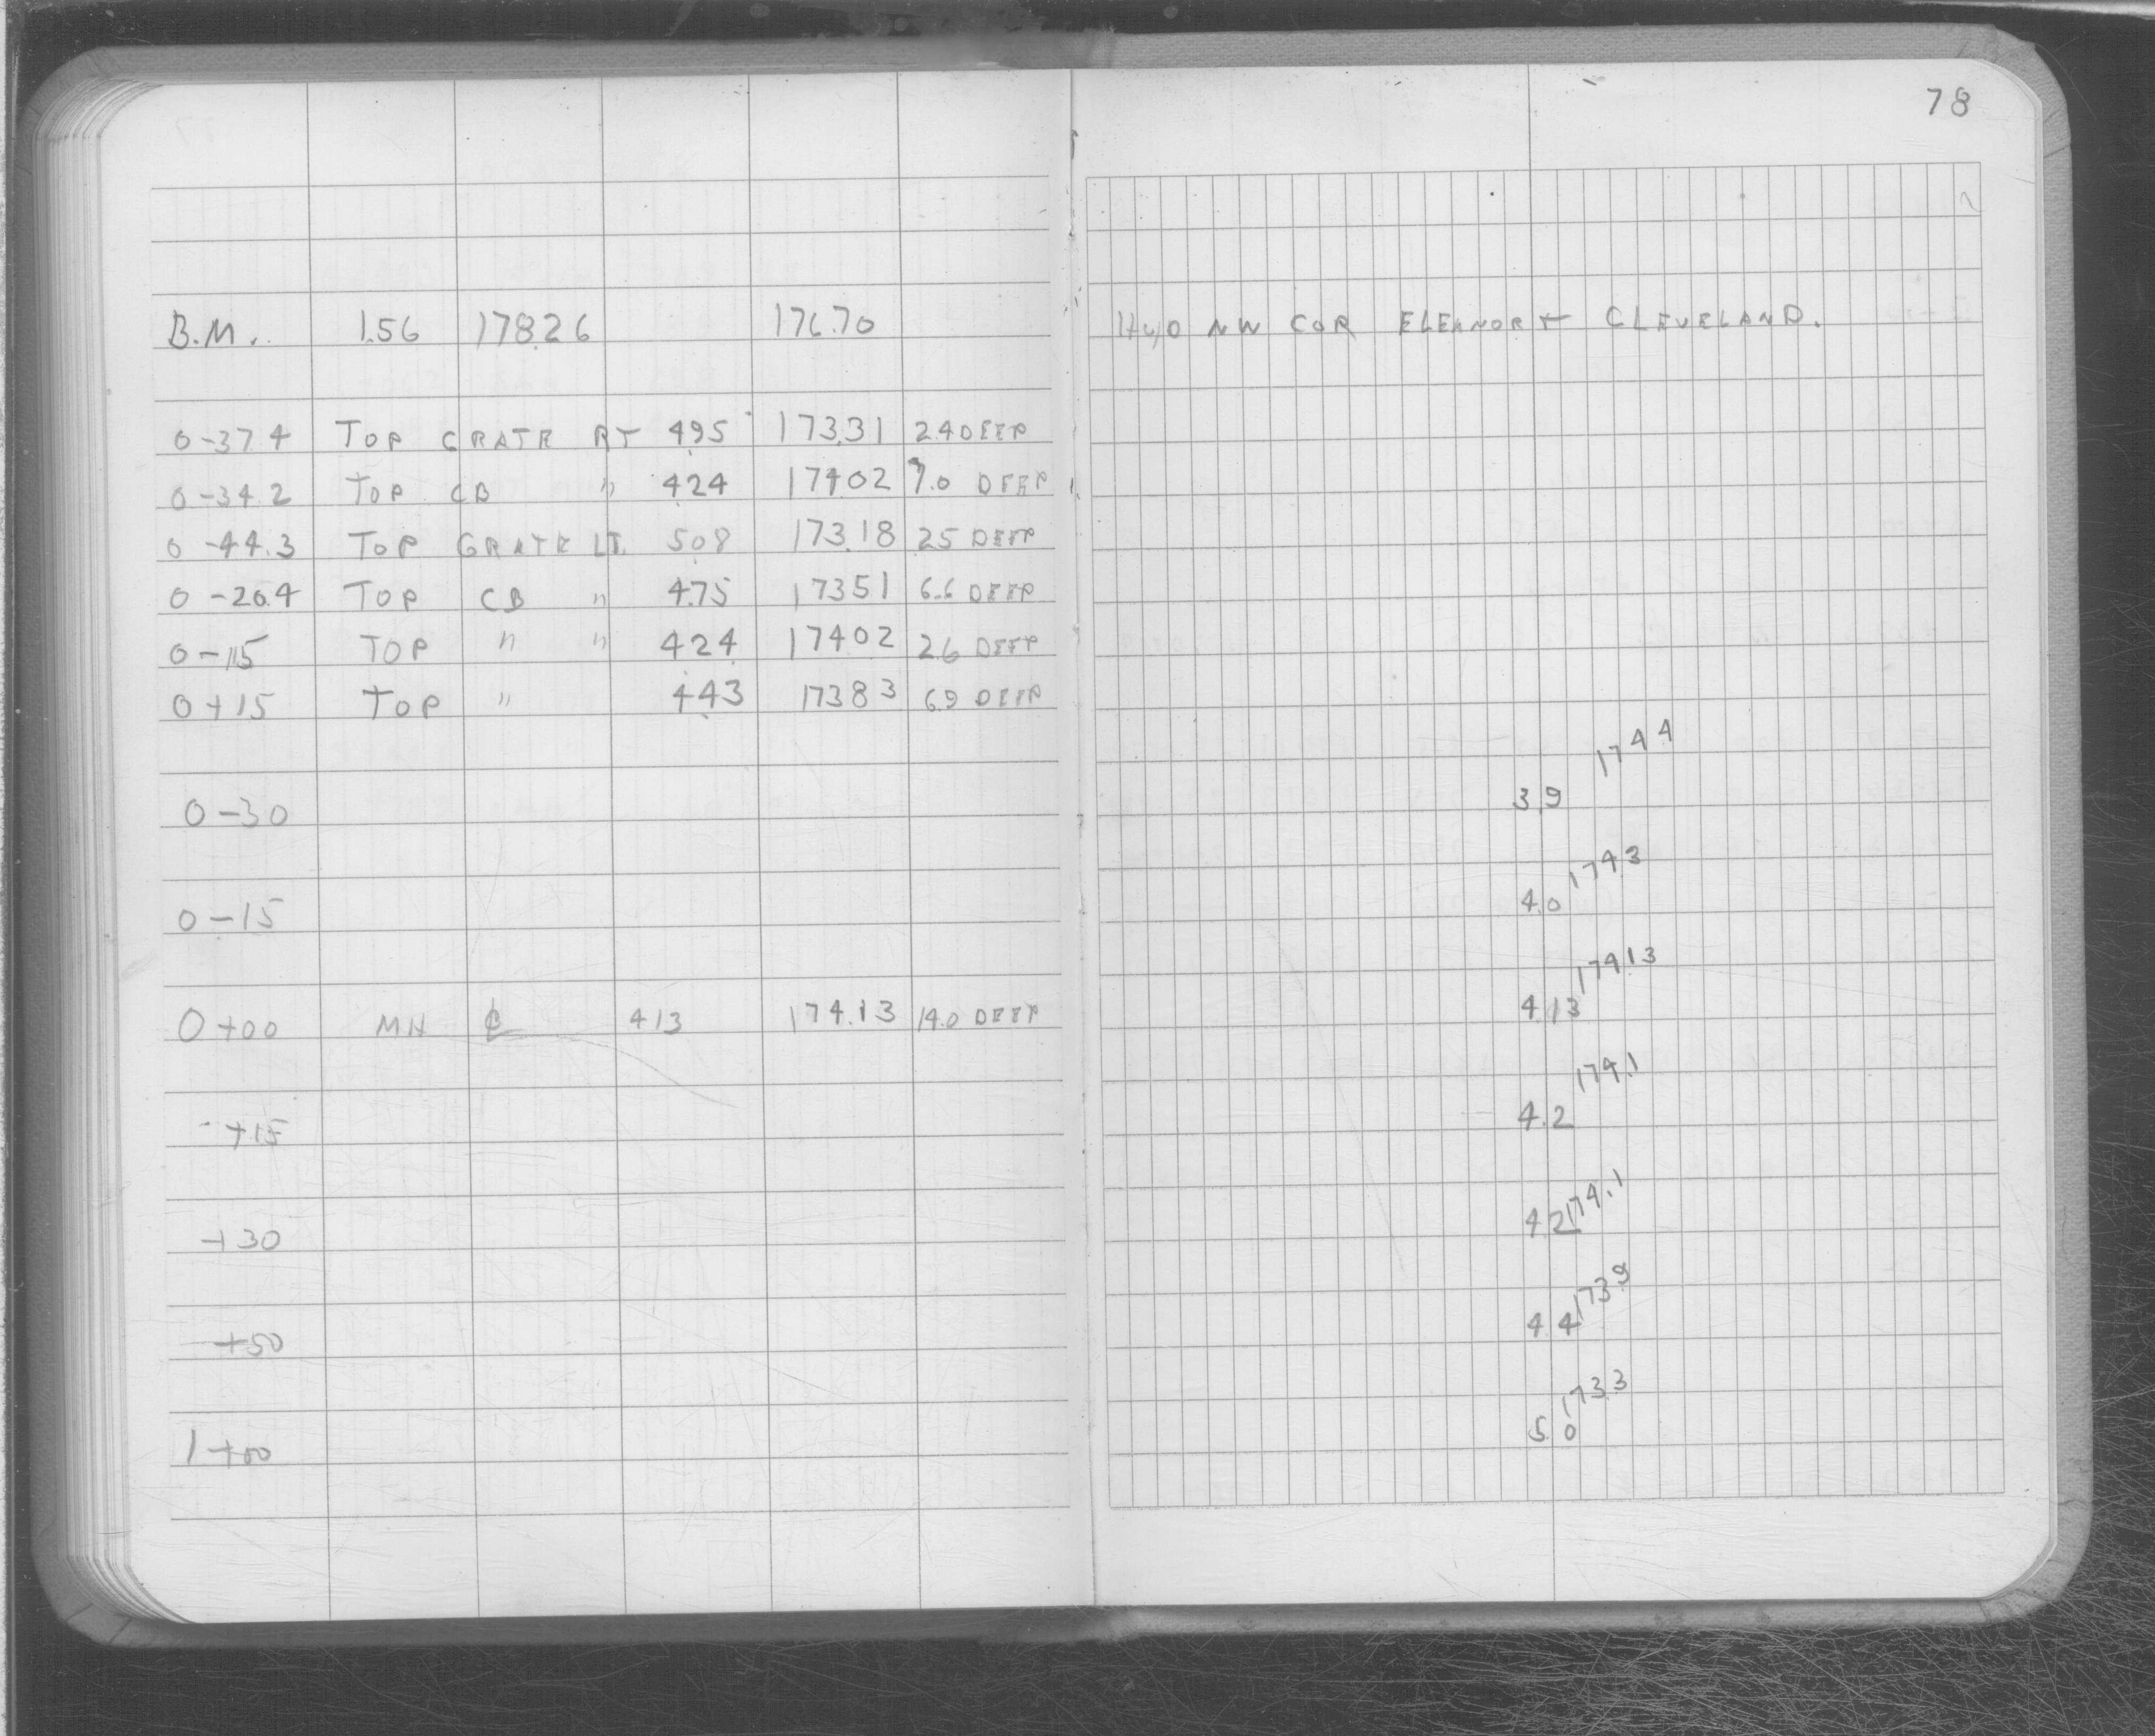 78
B.M. 1.56 178.26 176.70 Hyd NW COR ELEANOR + CLEVELAND.
0-37.4 TOP GRATE RT 4.95 173.31 2.4 DEEP
0-34.2 TOP CB " 4.24 174.02 7.0 DEEP
0-44.3 TOP GRATE LT. 5.08 173.18 2.5 DEEP
0-20.4 TOP CB " 4.75 173.51 6.6 DEEP
0-15 TOP " " 4.24 174.02 2.6 DEEP
0+15 TOP " 4.43 173.83 6.9 DEEP
0-30 3.9 174.4
0-15 4.0 174.3
0+00 MH ℄ 4.13 174.13 14.0 DEEP 4.13 174.13
+15 4.2 174.1
+30 4.2 174.1
+50 4.4 173.9
1+00 5.0 173.3